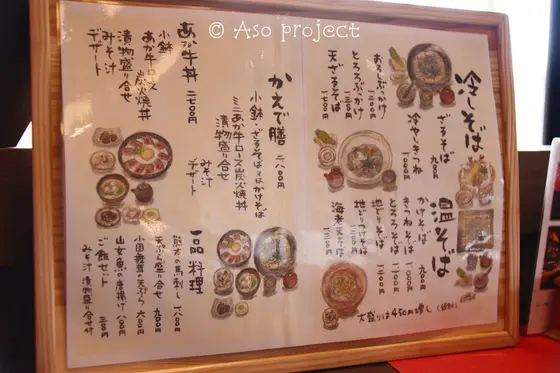 © Aso project
冷しそば
ざるそば 九〇〇円
冷やしきつね 一〇〇〇円
おろしぶっかけ 一二〇〇円
とろろぶっかけ 一二〇〇円
天ざるそば 一七〇〇円
温そば
かけそば 九〇〇円
きつねそば 一〇〇〇円
とろろそば 一二〇〇円
地どりそば
地どりつけそば
海老天そば
大盛りは450円増し
かえで膳 二八〇〇円
小鉢・ざるそば又はかけそば
ミニあか牛ロース炭火焼丼
漬物盛り合せ
みそ汁
デザート
あか牛丼 二七〇〇円
小鉢
あか牛ロース炭火焼丼
漬物盛り合せ
みそ汁
デザート
一品料理
熊本の馬刺し 一八〇〇円
天ぷら盛り合せ 九〇〇円
小国舞茸の天ぷら 六〇〇円
山女魚の唐揚げ 八〇〇円
ご飯セット 三五〇円
みそ汁 漬物盛り合せ付